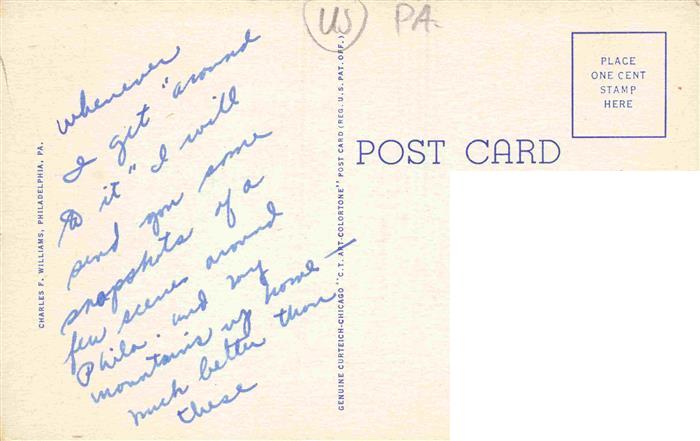 US PA.
whenever
I get "around
to it" I will
send you some
snapshots of a
few scenes around
Phila. and my
mountains up home —
much better than
these
CHARLES F. WILLIAMS, PHILADELPHIA, PA.
GENUINE CURTEICH-CHICAGO "C.T. ART-COLORTONE" POST CARD (REG. U.S. PAT. OFF.)
POST CARD
PLACE
ONE CENT
STAMP
HERE